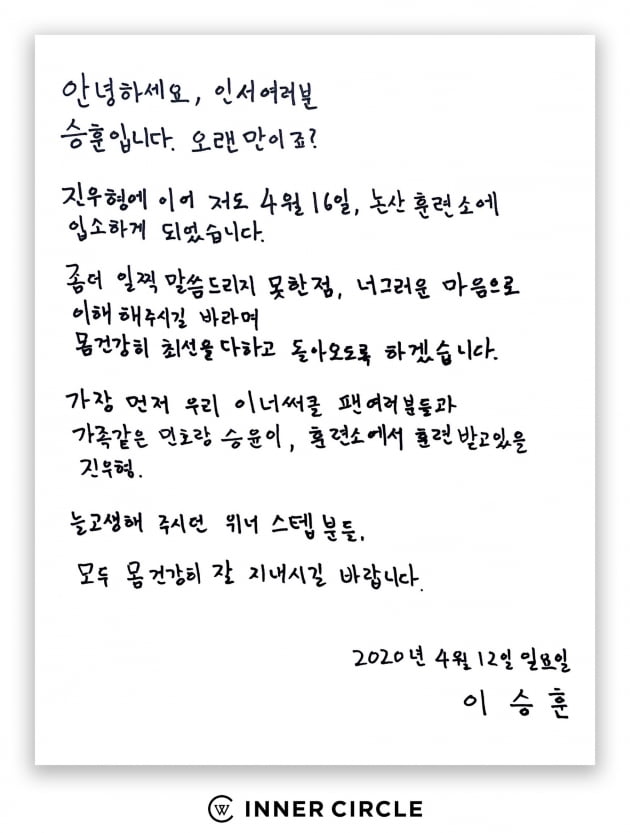 안녕하세요, 인서여러분
승훈입니다. 오랜만이죠?
진우형에 이어 저도 4월 16일, 논산 훈련소에
입소하게 되었습니다.
좀더 일찍 말씀드리지 못한점, 너그러운 마음으로
이해 해주시길 바라며
몸건강히 최선을다하고 돌아오도록 하겠습니다.
가장 먼저 우리 이너써클 팬여러분들과
가족같은 민호랑 승윤이, 훈련소에서 훈련 받고있을
진우형.
늘고생해 주시던 위너 스텝분들,
모두 몸건강히 잘 지내시길 바랍니다.
2020년 4월 12일 일요일
이 승 훈
W INNER CIRCLE